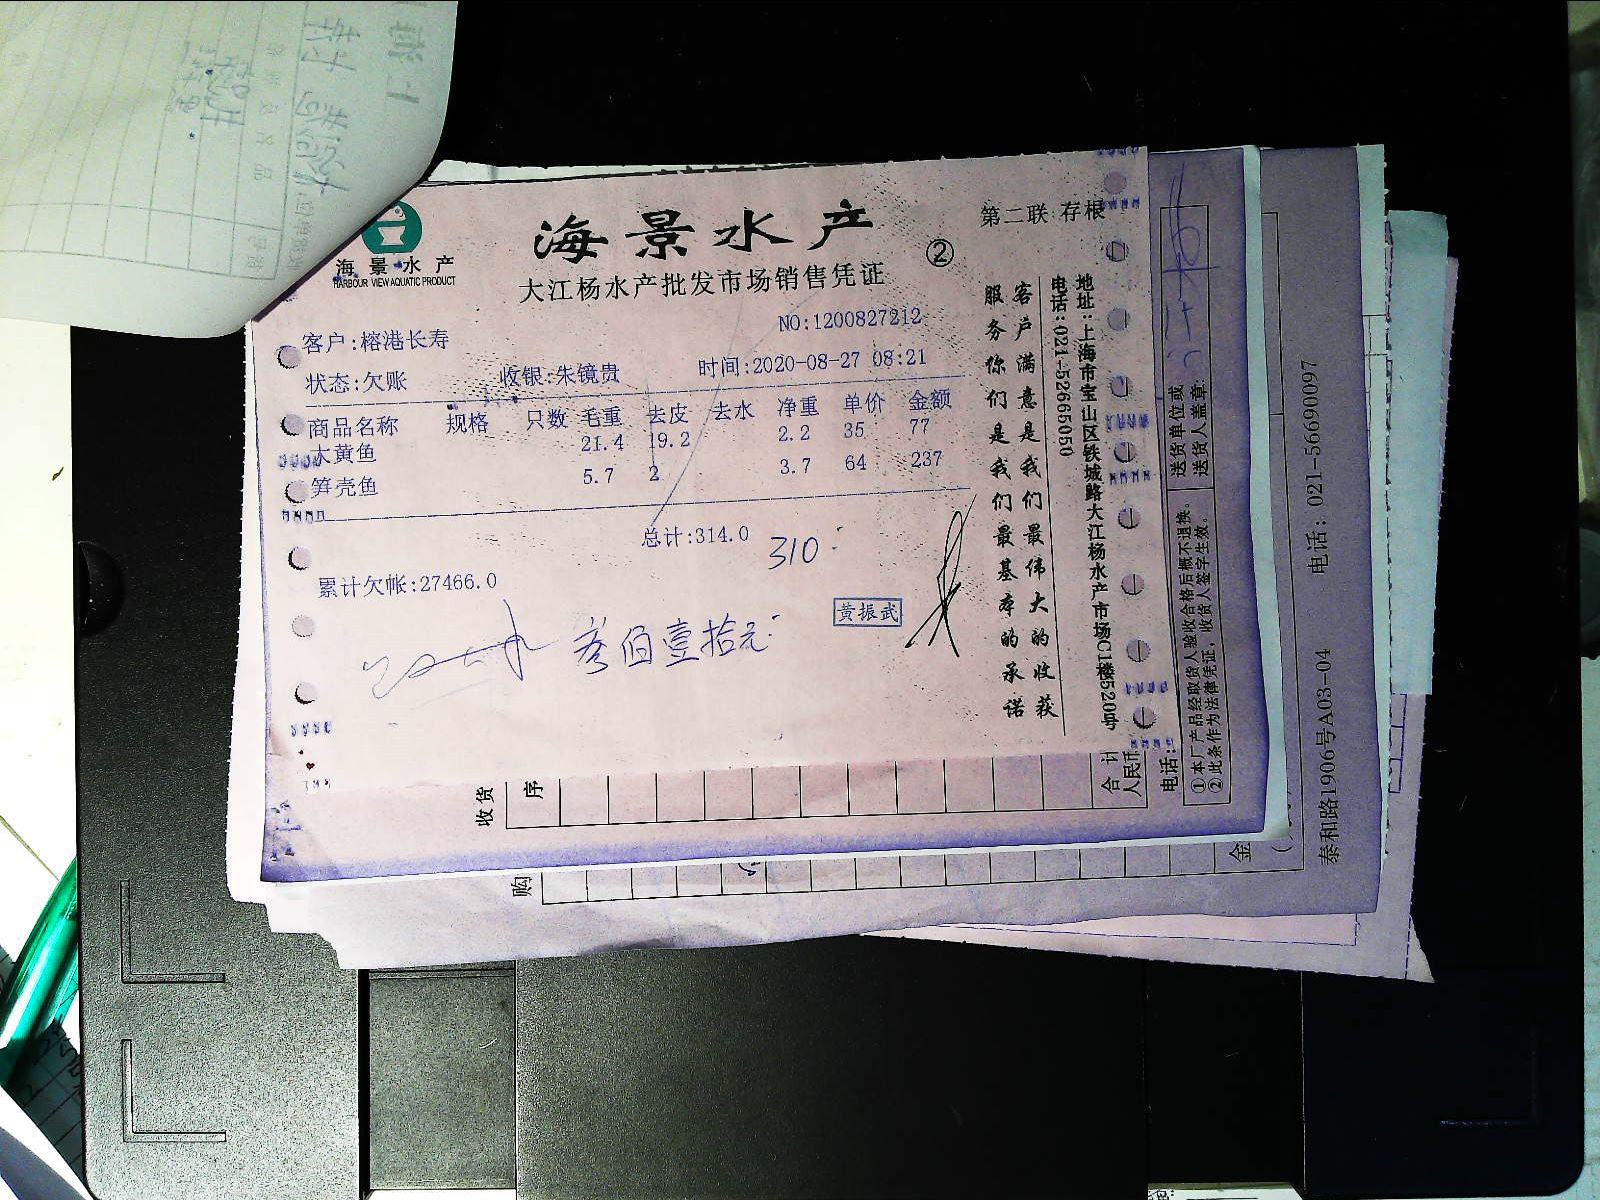 海景水产
HARBOUR VIEW AQUATIC PRODUCT
海景水产
大江杨水产批发市场销售凭证
②
第二联 存根
客户:榕港长寿
NO:1200827212
状态:欠账 收银:朱镜贵 时间:2020-08-27 08:21
商品名称 规格 只数 毛重 去皮 去水 净重 单价 金额
大黄鱼 21.4 19.2 2.2 35 77
笋壳鱼 5.7 2 3.7 64 237
总计:314.0
310
累计欠帐:27466.0
黄振武
叁佰壹拾元
客户满意是我们最伟大的收获
服务你们是我们最基本的承诺
地址:上海市宝山区铁城路大江杨水产市场C1楼520号
电话:021-52665050
送货单位或
送货人盖章
①本厂产品经取货人验收合格后概不退换。
②此条作为法律凭证，收货人签字生效。
电话:
合计
人民币
收货
序
购
金
泰和路1906号A03-04 电话：021-56690097